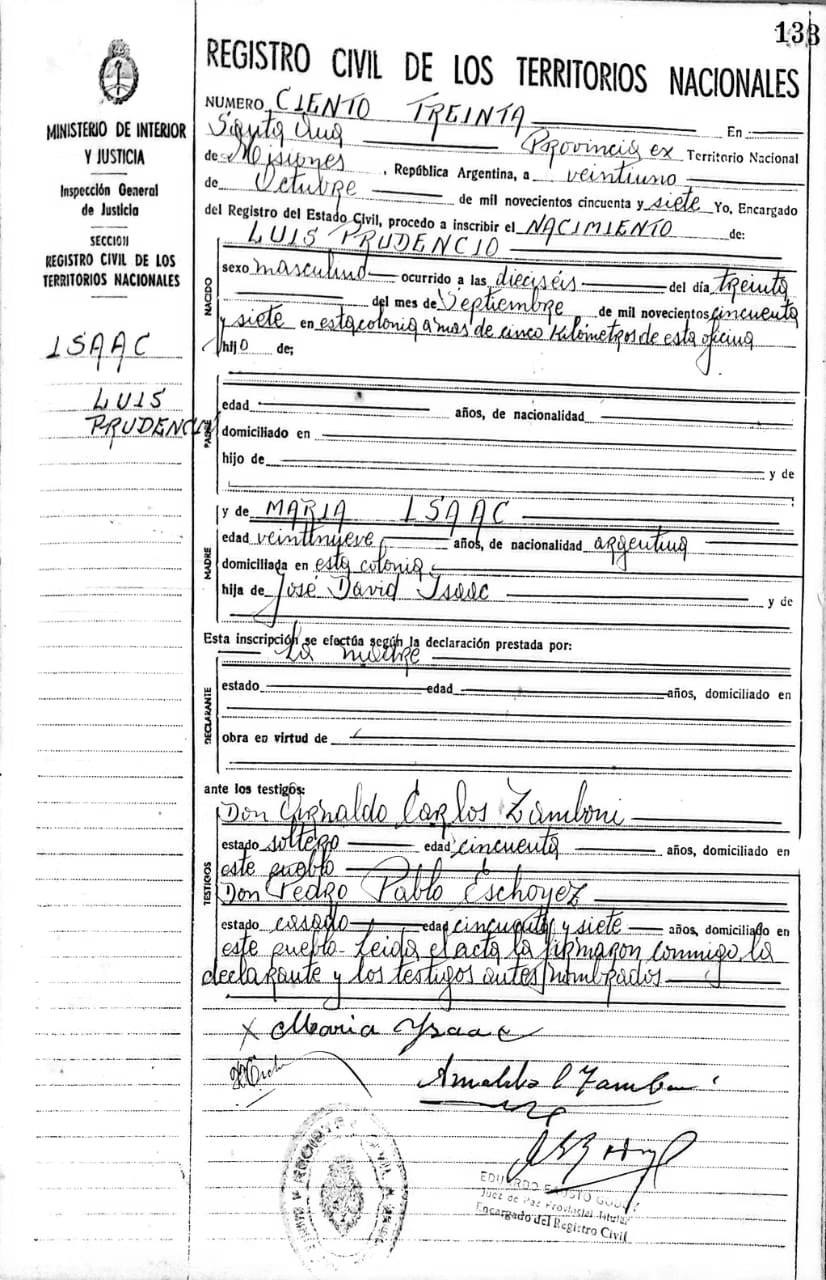 133
MINISTERIO DE INTERIOR
Y JUSTICIA
Inspección General
de Justicia
SECCION
REGISTRO CIVIL DE LOS
TERRITORIOS NACIONALES
ISAAC
LUIS
PRUDENCIO
REGISTRO CIVIL DE LOS TERRITORIOS NACIONALES
NUMERO CIENTO TREINTA En
Santa Ana Provincia ex Territorio Nacional
de Misiones, República Argentina, a veintiuno
de Octubre de mil novecientos cincuenta y siete Yo, Encargado
del Registro del Estado Civil, procedo a inscribir el NACIMIENTO de:
LUIS PRUDENCIO
NACIDO
sexo masculino ocurrido a las dieciséis del día treinta
del mes de Septiembre de mil novecientos cincuenta
y siete en esta colonia a mas de cinco kilómetros de esta oficina
hijo de;
PADRE
edad años, de nacionalidad
domiciliado en
hijo de y de
MADRE
y de MARIA ISAAC
edad veintinueve años, de nacionalidad argentina
domiciliada en esta colonia
hija de José David Isaac y de
Esta inscripción se efectúa según la declaración prestada por:
La madre
DECLARANTE
estado edad años, domiciliado en
obra en virtud de
ante los testigos:
Don Arnaldo Carlos Zamboni
TESTIGOS
estado soltero edad cincuenta años, domiciliado en
este pueblo
Don Pedro Pablo Eschoyez
estado casado edad cincuenta y siete años, domiciliado en
este pueblo- Leida el acta la firmaron conmigo la
declarante y los testigos antes nombrados
x Maria Ysaac
Arnaldo C Zamboni
EDUARDO FAUSTO
Juez de Paz Provincial Titular
Encargado del Registro Civil